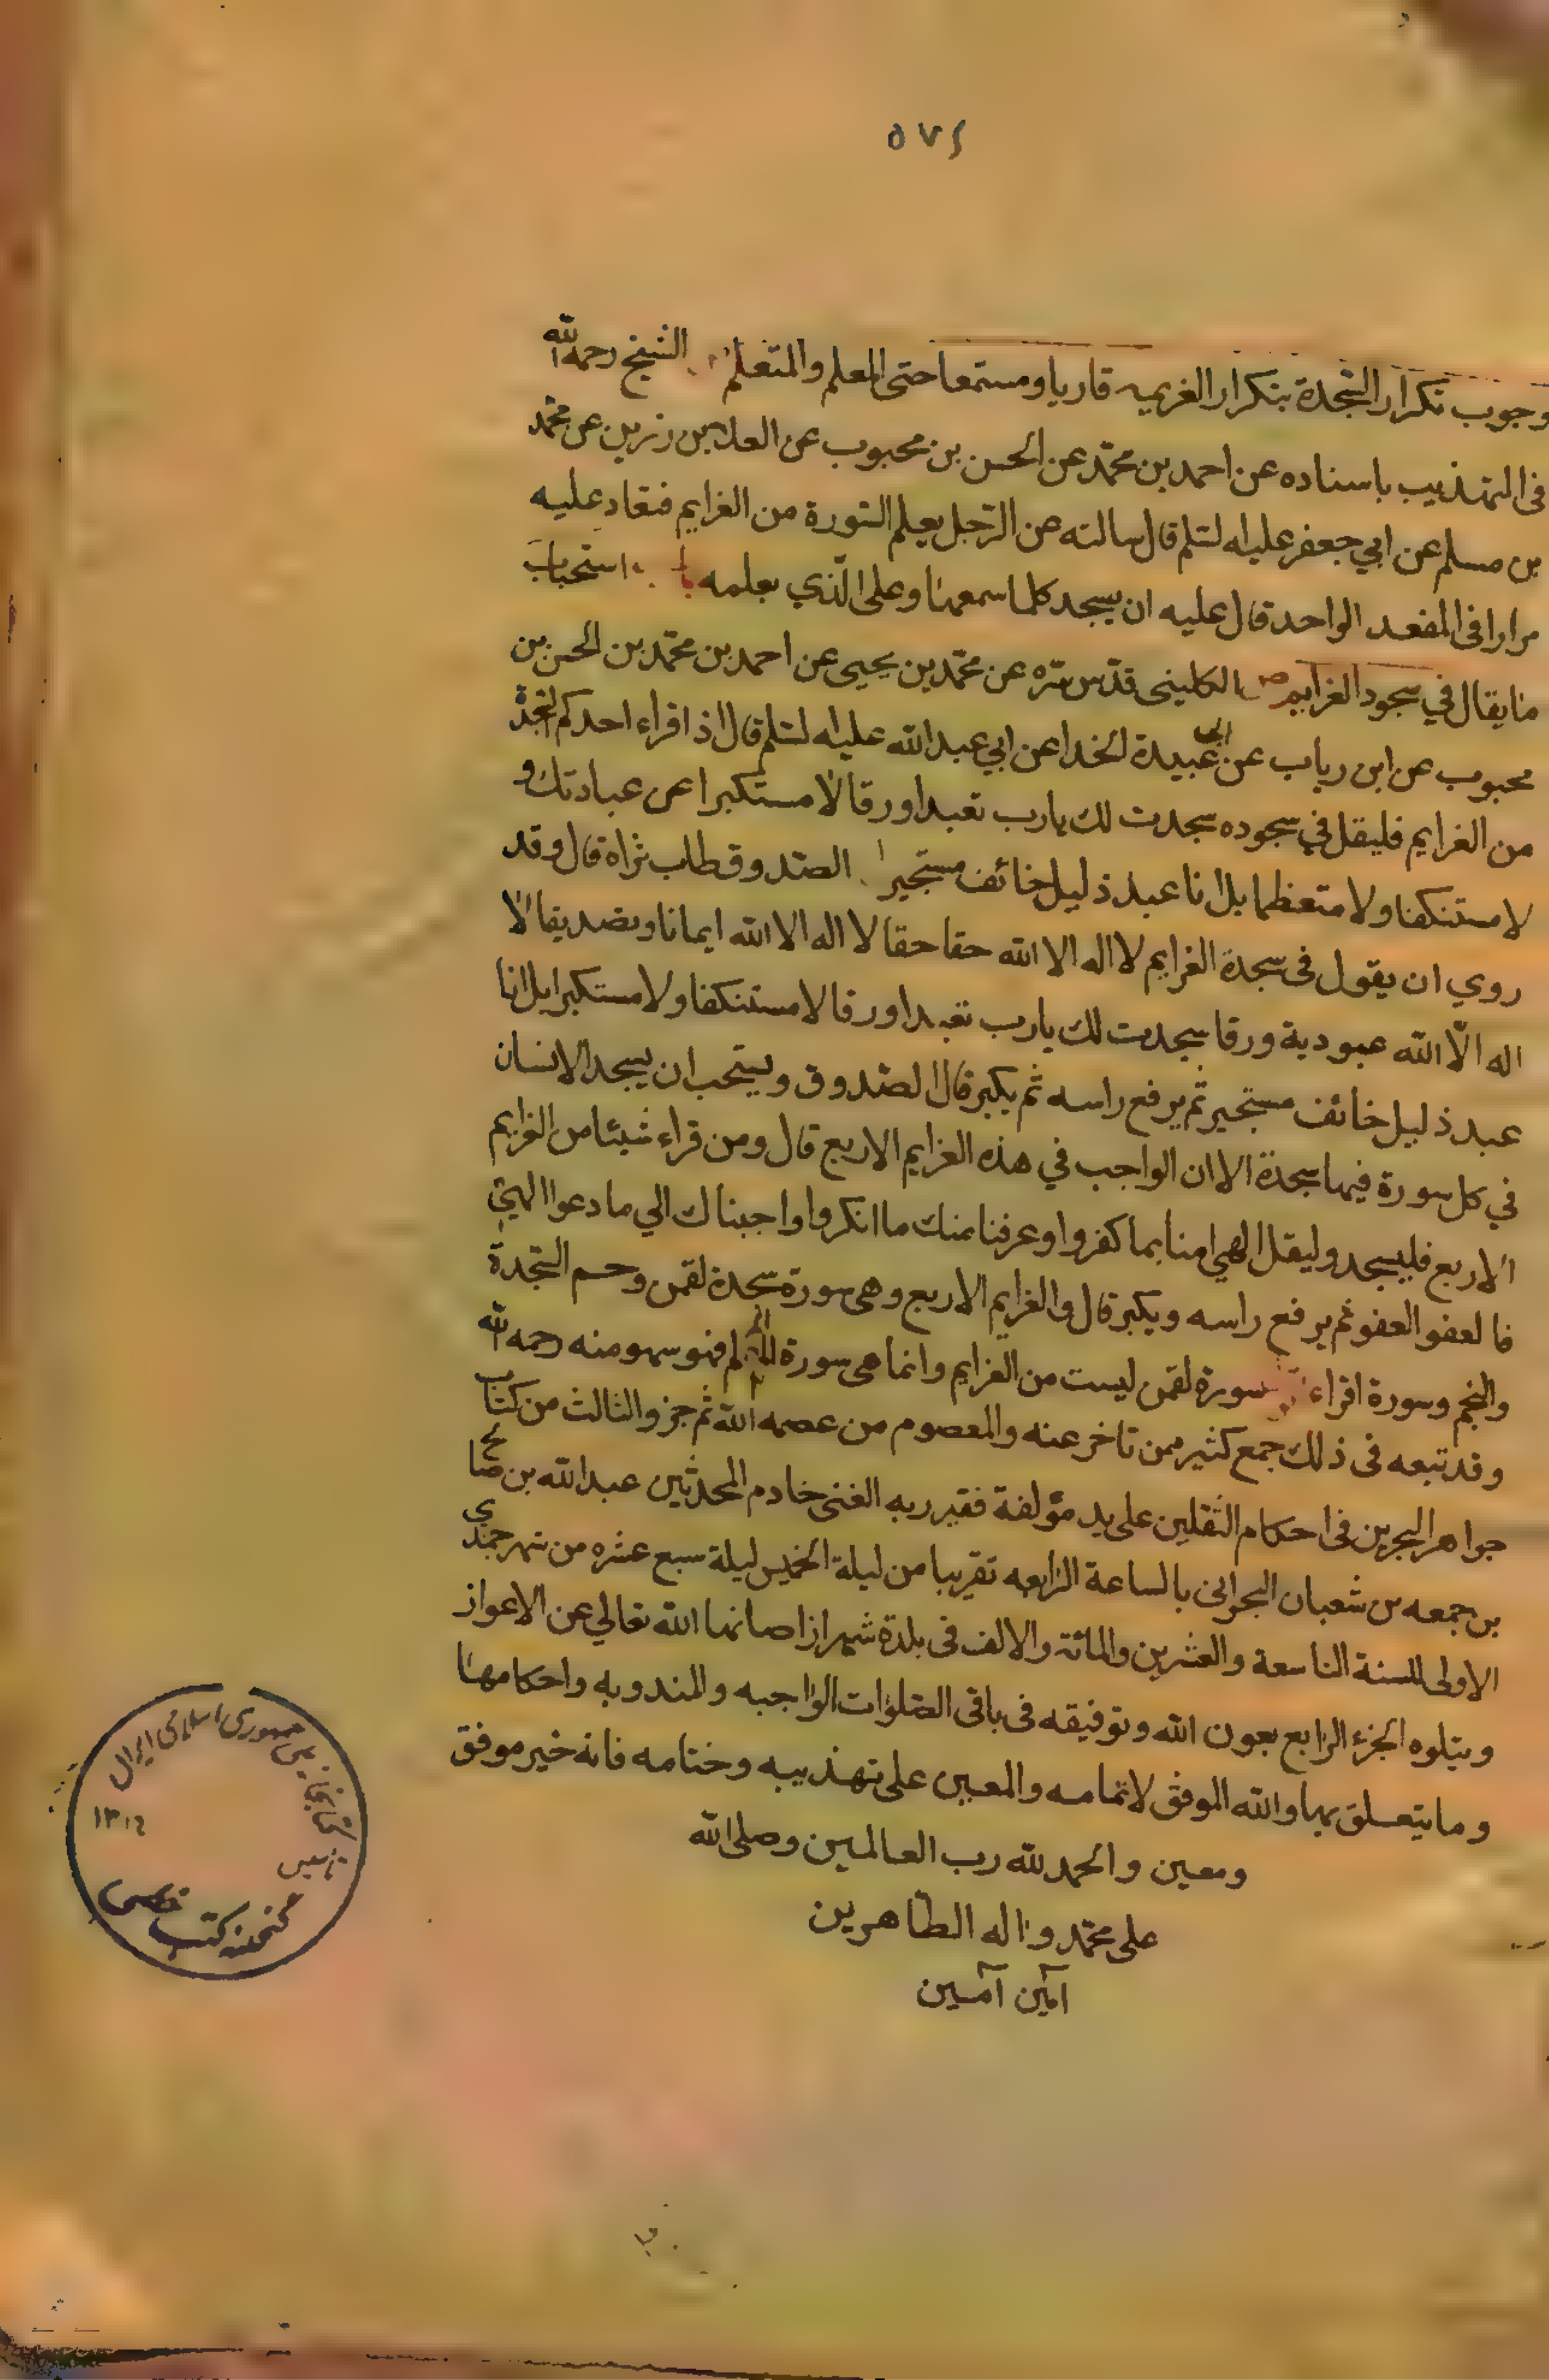 ٥٧٤
وجوب تكرار السّجدة بتكرار الغريمه قاريا ومستمعا حتى المعلم والمتعلم الشيخ رحمه الله
فى التهذيب باسناده عن احمد بن محمّد عن الحسن بن محبوب عن العلا بن زرين عن محمّد
بن مسلم عن ابي جعفر عليه السلم قال سالته عن الرّجل يعلم السّورة من الغرايم فتعاد عليه
مرارا فى المقعد الواحد قال عليه ان يسجد كلما سمعها وعلى الّذي يعلمه استحباب
ما يقال في سجود الغرايم الكلينى قدّس سرّه عن محمّد بن يحيى عن احمد بن محمّد بن الحسن بن
محبوب عن ابن رياب عن ابي عبيدة الخدا عن ابي عبد الله عليه السلم قال اذا قراء احدكم السّجدة
من الغرايم فليقل في سجوده سجدت لك يارب تعبدا ورقا لا مستكبرا عن عبادتك و
لا مستنكفا ولا متعظما بل انا عبد ذليل خائف مستجير الصّدوق طاب ثراه قال وقد
روي ان يقول فى سجدة الغرايم لا اله الا الله حقا حقا لا اله الا الله ايمانا وتصديقا لا
اله الّا الله عبودية ورقا سجدت لك يارب تعبدا ورقا لا مستنكفا ولا مستكبرا بل انا
عبد ذليل خائف مستجير ثم يرفع راسه ثم يكبر قال الصّدوق ويستحب ان يسجد الانسان
في كل سورة فيها سجدة الا ان الواجب في هذه الغرايم الاربع قال ومن قراء شيئا من الغرايم
الاربع فليسجد وليقل الهي امنا بما كفروا وعرفنا منك ما انكروا واجبناك الي ما دعوا الهي
فا لعفو العفو ثم يرفع راسه ويكبر قال والغرايم الاربع وهى سورة سجدة لقمن وحم السّجدة
والنجم وسورة اقراء سورة لقمن ليست من الغرايم وانما هى سورة الم فهو سهو منه رحمه الله
وقد تبعه فى ذلك جمع كثير ممن تاخر عنه والمعصوم من عصمه الله ثم جزو الثالث من كتاب
جواهر البحرين فى احكام الثقلين على يد مؤلفة فقير ربه الغنى خادم المحدثين عبد الله بن صالح
بن جمعه بن شعبان البحرانى بالساعة الرابعه تقريبا من ليلة الخميس ليلة سبع عشره من شهر جمدي
الاولى للسنة التاسعة والعشرين والمائة والالف فى بلدة شيراز اصانها الله تعالي عن الاعواز
ويتلوه الجزء الرابع بعون الله وتوفيقه فى باقى الصّلوات الواجبه والمندوبه واحكامها
وما يتعلق بها والله الموفق لاتمامه والمعين على تهذيبه وختامه فانه خير موفق
ومعين والحمد لله رب العالمين وصلى الله
على محمّد واله الطاهرين
آمين آمين
جمهوری اسلامی ایران
تاسیس
گنجینه کتب خطی